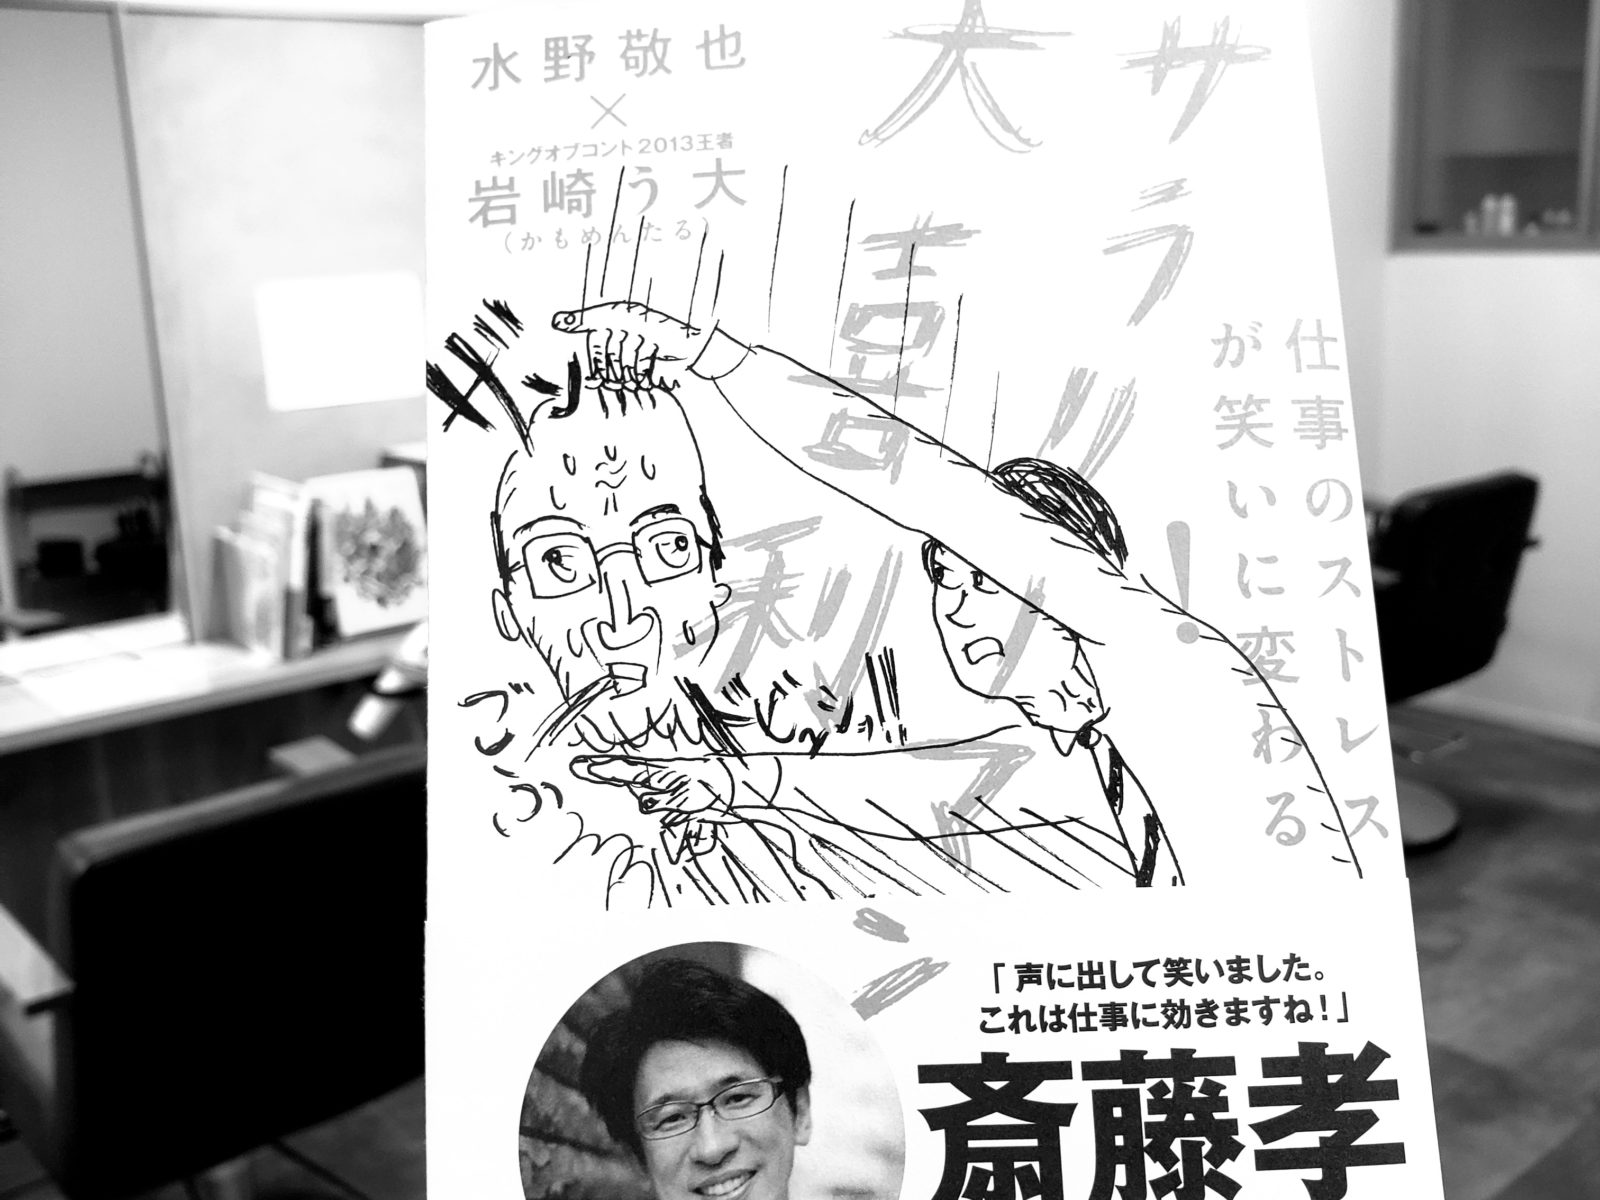 水野敬也
×
キングオブコント2013王者
岩崎う大
(かもめんたる)
サラリーマン
大喜利
仕事のストレス
が笑いに変わる!
ガッ
ドビシュッ!!
ごふっ
「声に出して笑いました。
これは仕事に効きますね!」
斎藤孝